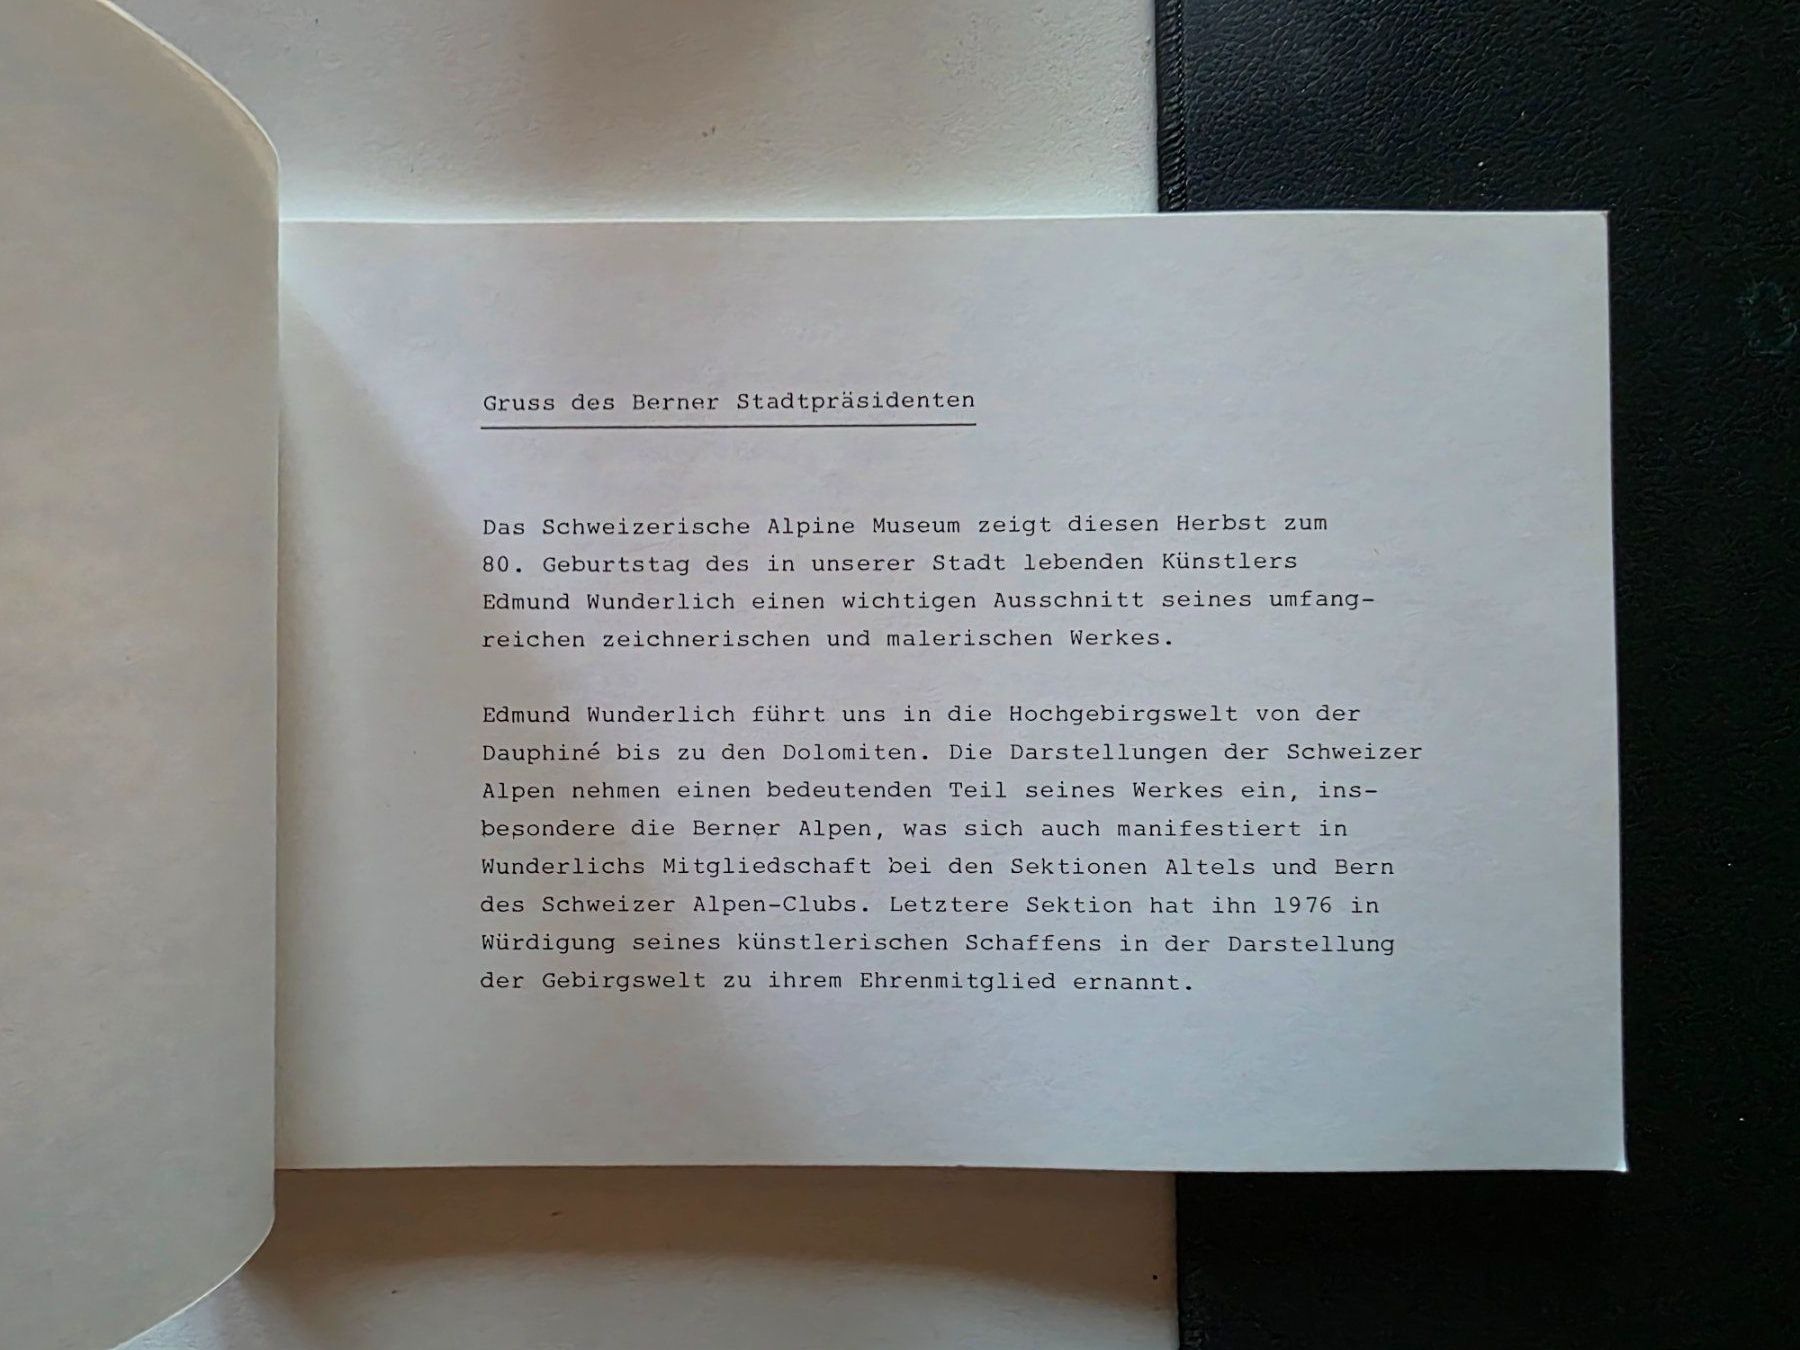 Gruss des Berner Stadtpräsidenten
Das Schweizerische Alpine Museum zeigt diesen Herbst zum
80. Geburtstag des in unserer Stadt lebenden Künstlers
Edmund Wunderlich einen wichtigen Ausschnitt seines umfang-
reichen zeichnerischen und malerischen Werkes.
Edmund Wunderlich führt uns in die Hochgebirgswelt von der
Dauphiné bis zu den Dolomiten. Die Darstellungen der Schweizer
Alpen nehmen einen bedeutenden Teil seines Werkes ein, ins-
besondere die Berner Alpen, was sich auch manifestiert in
Wunderlichs Mitgliedschaft bei den Sektionen Altels und Bern
des Schweizer Alpen-Clubs. Letztere Sektion hat ihn 1976 in
Würdigung seines künstlerischen Schaffens in der Darstellung
der Gebirgswelt zu ihrem Ehrenmitglied ernannt.